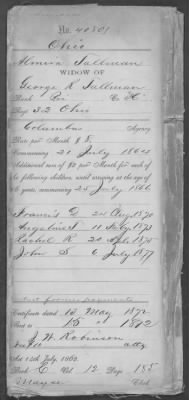 No. 40801
Ohio
Almira Tallman
WIDOW OF
George R Tallman
Rank Pvt Co H
Regt 32 Ohio
Columbus Agency
Rate per Month $ 8
Commencing 21 July 1864
Additional sum of $2 per month for each of
the following children, until arriving at the age of
16 years, commencing 25 July 1866
Francis D 24 Aug 1870
Angeline S 11 July 1873
Rachel R 20 1875
John S 6 July 1877
Certificate dated 13 May 1872
Sent to 15 " 1872
J. W. Robinson
atty
Act 14th July, 1862.
Book C Vol. 12 Page 185
Mayse Clerk